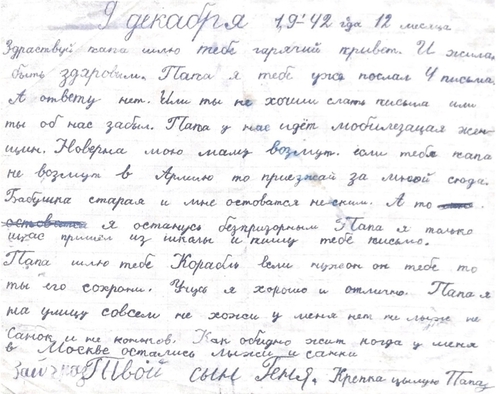 9 декабря 19-42 года 12 месяца
Здраствуй папа шлю тебе гарячий привет. И жилаю
быть здаровим. Папа я тебе уже послал 4 письма.
А ответу нет. Или ты не хочиш слать письма или
ты об нас забыл. Папа у нас идёт мобилезацая жен-
щин. Наверна мою маму возмут. если тебя папа
не возмут в Армию то приезжай за мной сюда.
Бабушка старая и мне остоватся не ским. А то
я останусь безпризорным Папа я только
щас пришёл из шкалы и пишу тебе письмо.
Папа шлю тебе Корабль если нужон он тебе то
ты его сохрани. Учусь я хорошо и отлично. Папа я
на улицу совсем не хожу у меня нет не лыж не
Санок и не коньков. Как обидно жит когда у меня
в Москве остались лыжи и санки
Твой сын Геня. Крепка цылую Папа